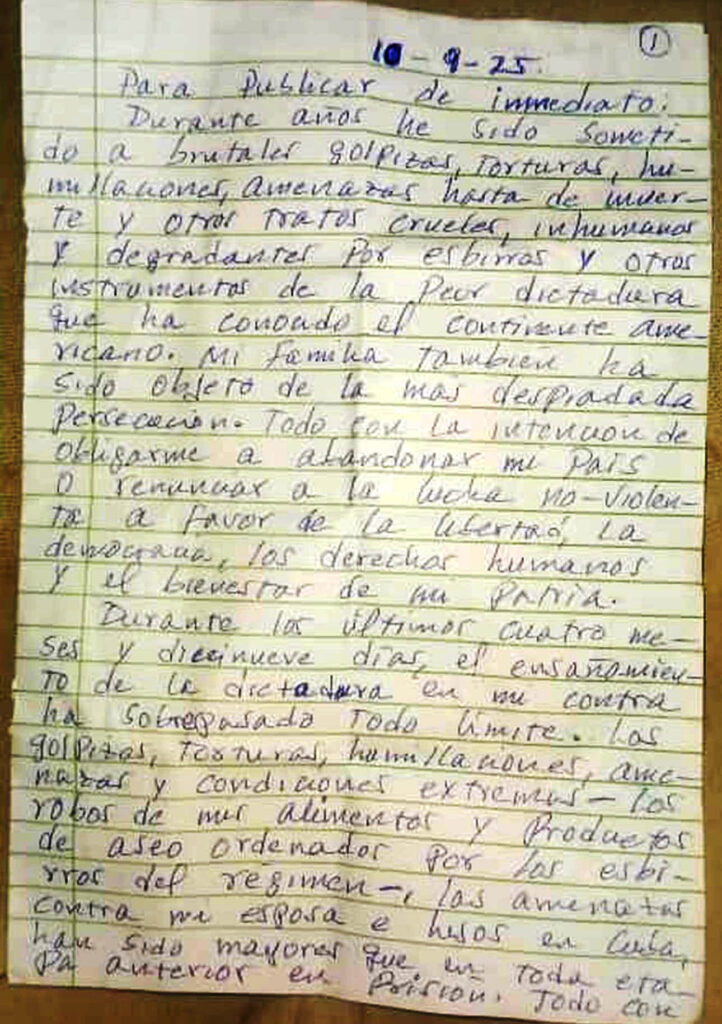 1
10-9-25.
Para Publicar de inmediato:
Durante años he sido someti-
do a brutales golpizas, torturas, hu-
millaciones, amenazas hasta de muer-
te y otros tratos crueles, inhumanos
y degradantes por esbirros y otros
instrumentos de la peor dictadura
que ha conocido el continente ame-
ricano. Mi familia tambien ha
sido objeto de la mas despiadada
persecucion. Todo con la intencion de
obligarme a abandonar mi Pais
o renunciar a la lucha no-violen-
ta a favor de la libertad, la
democracia, los derechos humanos
y el bienestar de mi Patria.
Durante los últimos cuatro me-
ses y diecinueve días, el ensañamien-
to de la dictadura en mi contra
ha sobrepasado todo límite. Las
golpizas, torturas, humillaciones, ame-
nazas y condiciones extremas - los
robos de mis alimentos y productos
de aseo ordenados por los esbi-
rros del régimen -, las amenazas
contra mi esposa e hijos en Cuba,
han sido mayores que en toda eta-
pa anterior en Prisión. Todo con